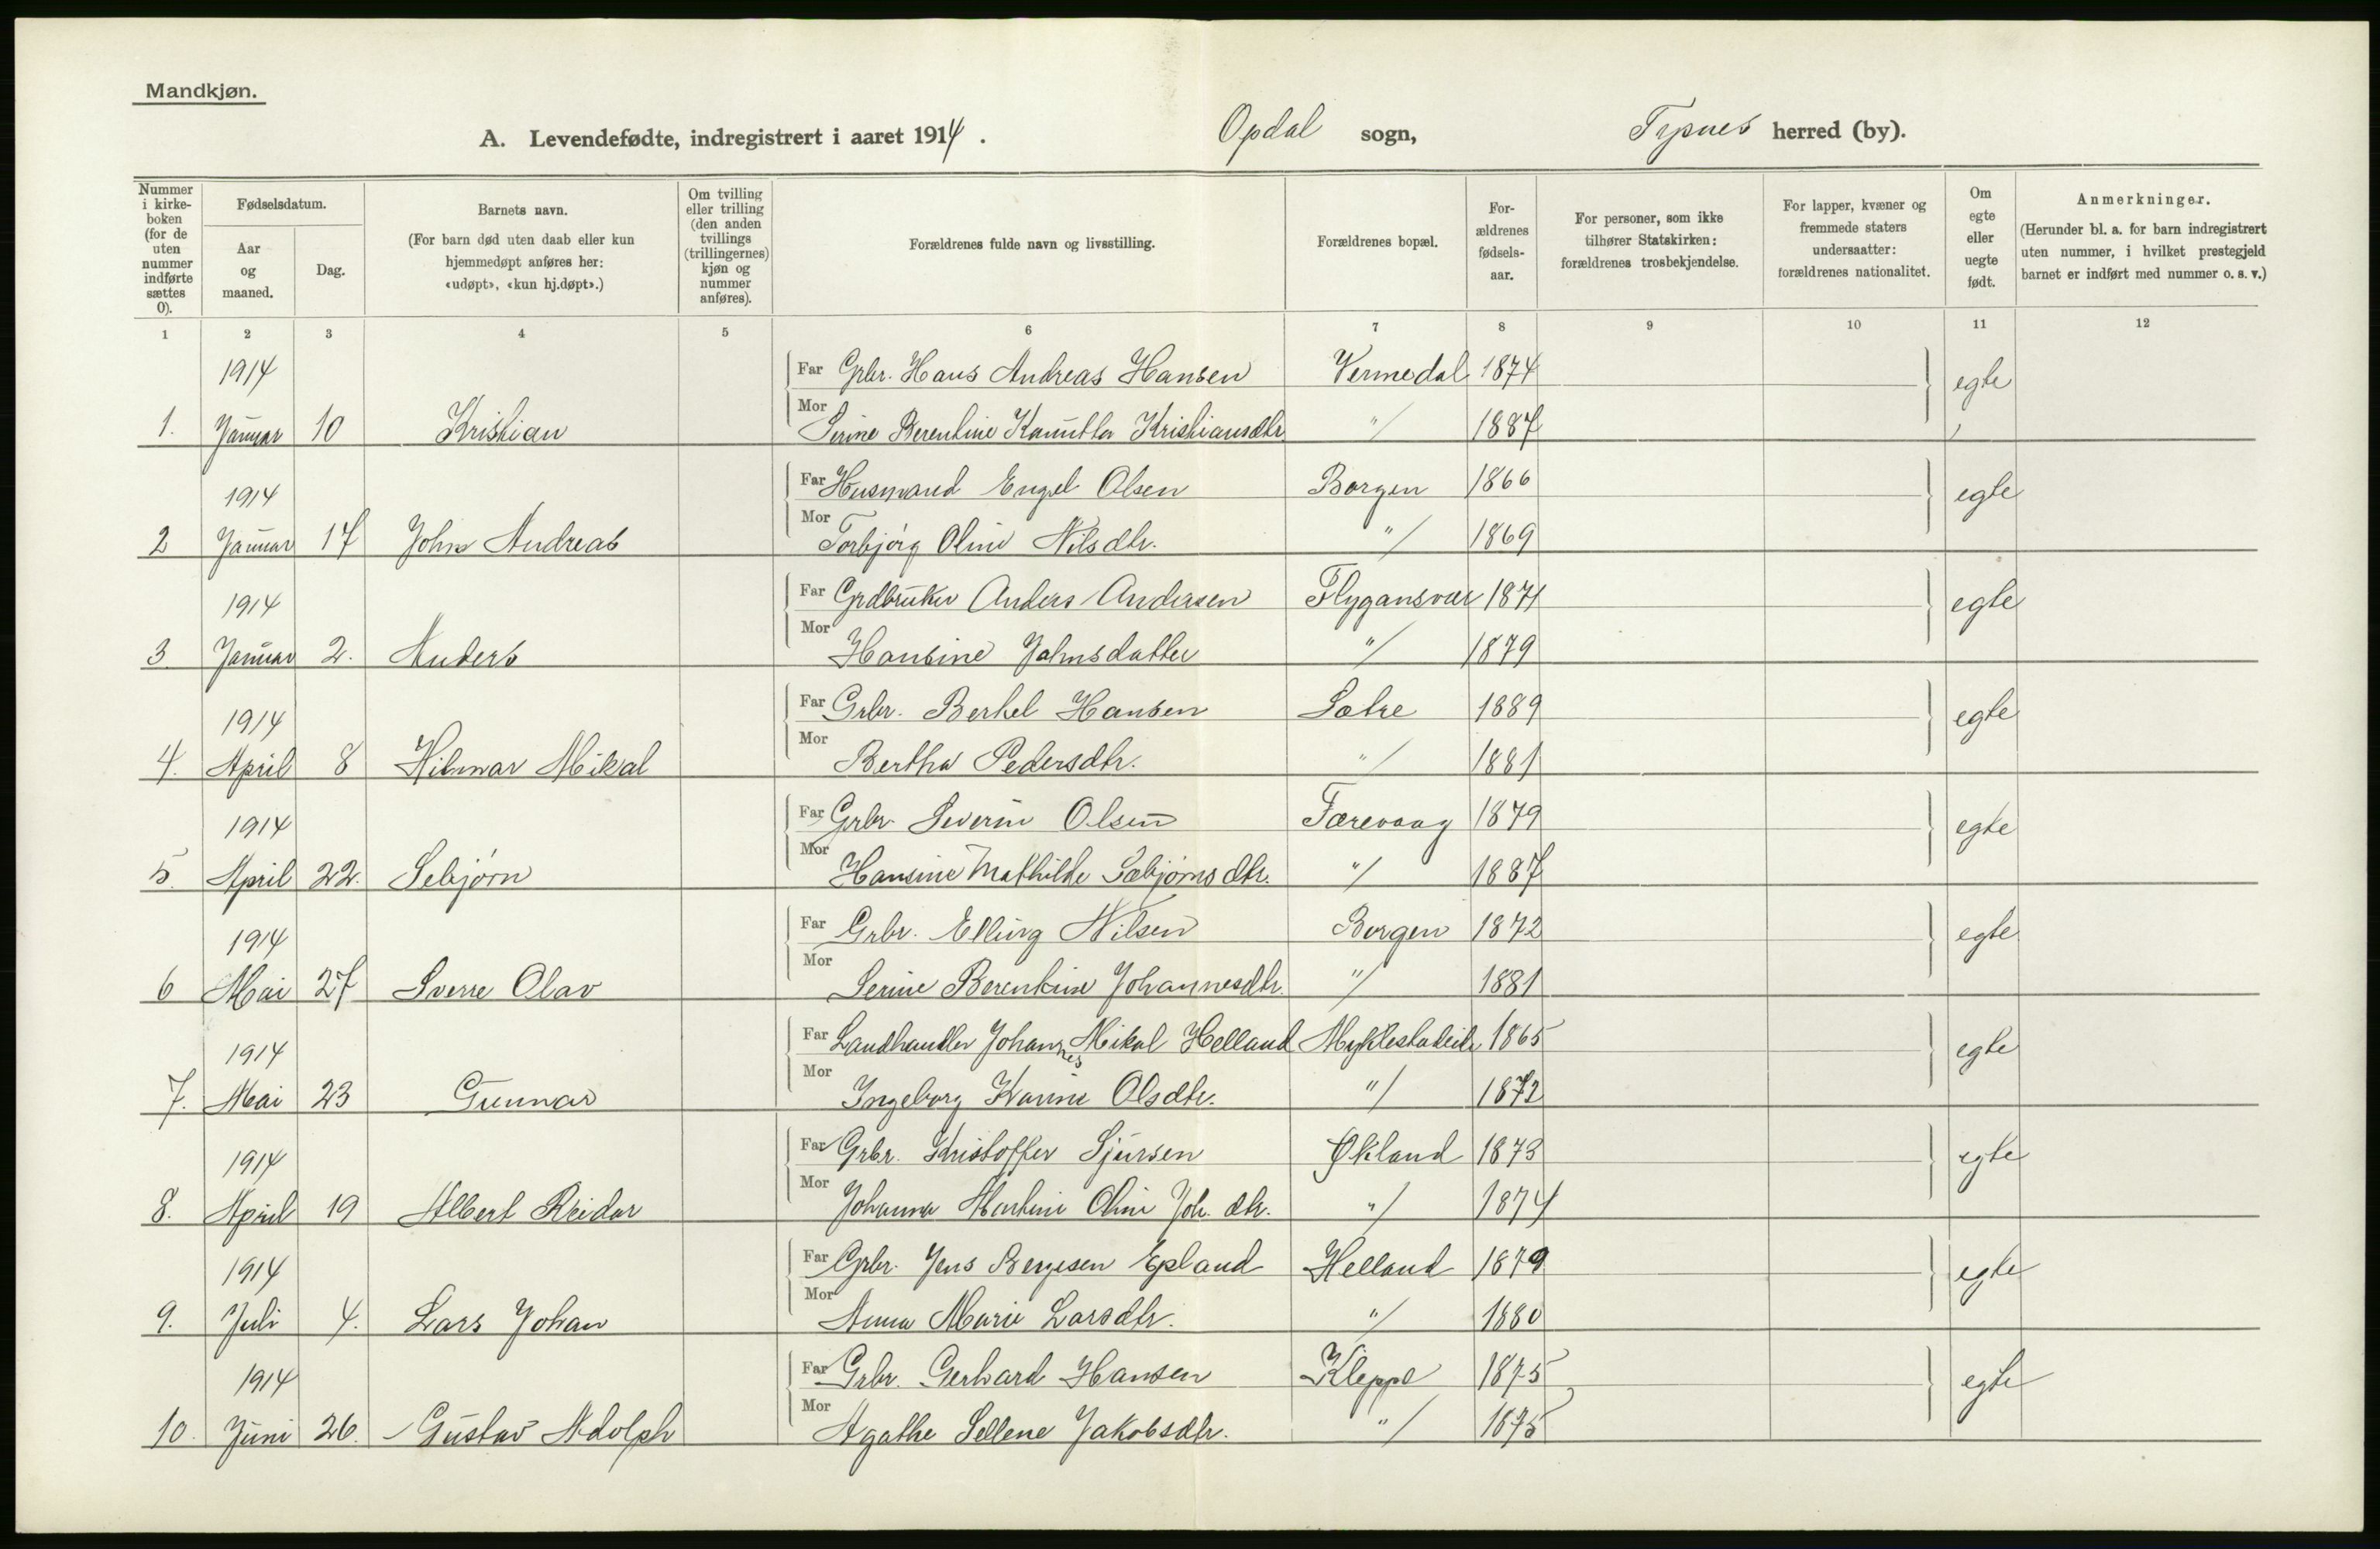 Mandkjøn.
A. Levendefødte, indregistrert i aaret 1914. Opdal sogn, Tysnes herred (by).
Nummer i kirke-boken (for de uten nummer indførte sættes 0).
Fødselsdatum.
Aar og maaned.
Dag.
Barnets navn.
(For barn død uten daab eller kun hjemmedøpt anføres her: «udøpt», «kun hj.døpt».)
Om tvilling eller trilling (den anden tvillings (trillingernes) kjøn og nummer anføres).
Forældrenes fulde navn og livsstilling.
Forældrenes bopæl.
For-ældrenes fødsels-aar.
For personer, som ikke tilhører Statskirken: forældrenes trosbekjendelse.
For lapper, kvæner og fremmede staters undersaatter: forældrenes nationalitet.
Om egte eller uegte født.
Anmerkninger.
(Herunder bl. a. for barn indregistrert uten nummer, i hvilket prestegjeld barnet er indført med nummer o. s. v.)
1 2 3 4 5 6 7 8 9 10 11 12
1914 Far Grbr. Hans Andreas Hansen Vermedal 1874 egte
1. Januar 10 Kristian Mor Serine Berentine Kristiansdtr " 1887
1914 Far Husmand Engel Olsen Borgen 1866 egte
2 Januar 17 John Andreas Mor Torbjørg Oline Nilsdtr. " 1869
1914 Far Grdbruker Anders Andersen Flygansvær 1871 egte
3. Januar 2. Anders Mor Hansine Johnsdatter " 1879
1914 Far Grbr. Berthel Hansen Sætre 1889 egte
4. April 8 Hilmar Mikal Mor Bertha Pedersdtr. " 1881
1914 Far Grbr Severin Olsen Færevaag 1879 egte
5. April 22. Sebjørn Mor Hansine Mathilde Sæbjørnsdtr. " 1887
1914 Far Grbr. Elling Nilsen Borgen 1872 egte
6 Mai 27 Sverre Olav Mor Serine Berentine Johannesdtr. " 1881
1914 Far Landhandler Johannes Mikal Helland 1865 egte
7. Mai 23 Gunnar Mor Ingeborg Karine Olsdtr. " 1872
1914 Far Grbr. Kristoffer Sjursen Økland 1873 egte
8. April 19 Albert Reidar Mor Johanna Martine Oline Joh. dtr. " 1874
1914 Far Grbr. Jens Bergesen Epland Helland 1879 egte
9. Juli 4. Lars Johan Mor Anna Marie Larsdtr. " 1880
1914 Far Grbr. Gerhard Hansen Kleppe 1875 egte
10. Juni 26. Gustav Adolph Mor Agathe Sellene Jakobsdtr. " 1875